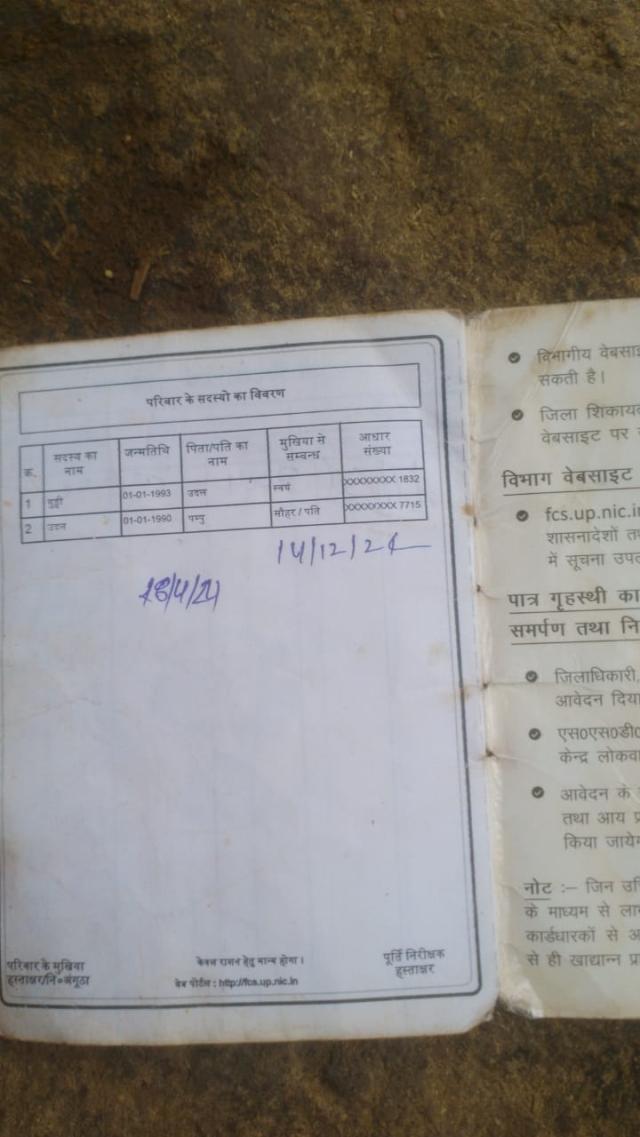 परिवार के सदस्यो का विवरण
क. सदस्य का नाम जन्मतिथि पिता/पति का नाम मुखिया से सम्बन्ध आधार संख्या
1 गुड्डी 01-01-1993 उदल स्वयं XXXXXXXX 1832
2 उदल 01-01-1990 पम्पु सौहर / पति XXXXXXXX 7715
14/12/24
18/4/24
परिवार के मुखिया
हस्ताक्षर/नि०अंगूठा
केवल राशन हेतु मान्य होगा।
वेब पोर्टल : http://fcs.up.nic.in
पूर्ति निरीक्षक
हस्ताक्षर
विभागीय
सकती है।
जिला
वेबसाइट पर
विभाग वेबसाइट
fcs.up.nic.in
शासनादेशों
में सूचना
पात्र गृहस्थी
समर्पण तथा
जिलाधिकारी,
आवेदन दिया
केन्द्र
आवेदन के
तथा आय
किया
नोट :– जिन
के माध्यम से
कार्डधारकों से
से ही खाद्यान्न